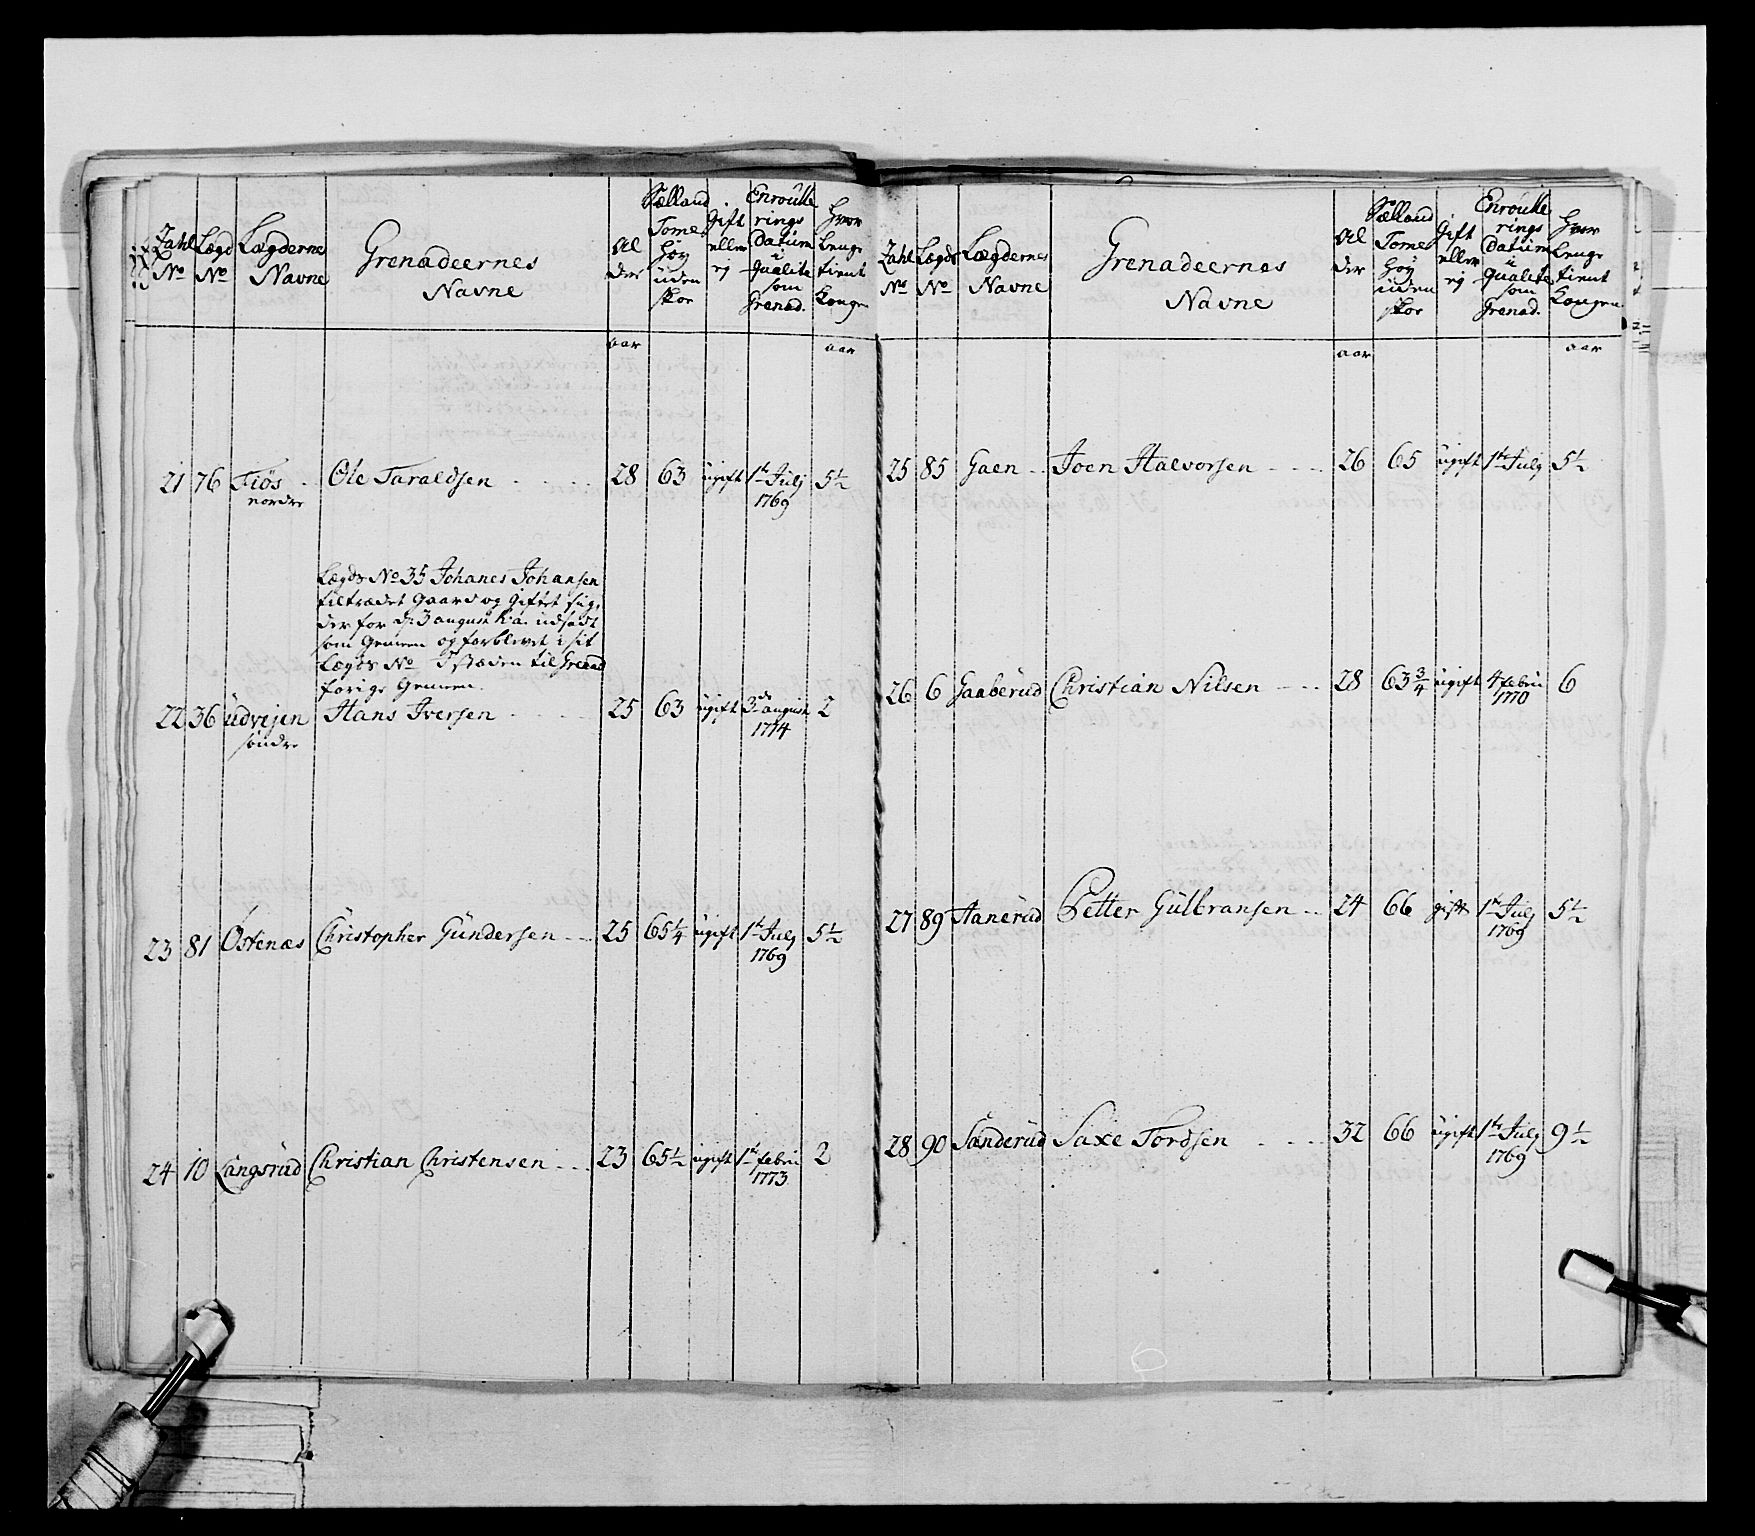 Zahl No | Lægd No | Lægdernes Navne | Grenadeernes Navne | Al der | Sælland Tomer høy uden skoe | Gift eller ej | Enroulle rings Datum i Qualite som Grenad. | Hvor lenge tient Kongen
aar | aar
21 | 76 | Tiøs nordre | Ole Taraldsen | 28 | 63 | ugift | 1te Julj 1769 | 5½
Lægds No 35 Johanes Johansen
tiltrædet Gaard og giftet sig,
der for d: 3 august h:a: udsadt
som Gemeen og forblevet i sit
Lægds No I stæden til Grenad
forige Gemeen.
22 | 36 | Udvejen søndre | Hans Iversen | 25 | 63 | ugift | 3de august 1774 | 2
23 | 81 | Østenæs | Christopher Gundersen | 25 | 65¼ | ugift | 1te Julj 1769 | 5½
24 | 10 | Langsrud | Christian Christensen | 23 | 65½ | ugift | 1te febru 1773 | 2
Zahl No | Lægds No | Lægdernes Navne | Grenadeernes Navne | Al der | Sælland Tomer høy uden skoe | Gift eller ej | Enroulle rings Datum i Qualite som Grenad. | Hvor lenge tient Kongen
aar | aar
25 | 85 | Gaen | Joen Halvorsen | 26 | 65 | ugift | 1te Julj | 5½
26 | 6 | Gaaberud | Christian Nilsen | 28 | 63¾ | ugift | 4 febru 1770 | 6
27 | 89 | Hanerud | Petter Gulbransen | 24 | 66 | gift | 1te Julj 1769 | 5½
28 | 90 | Sanderud | Saxe Tordsen | 32 | 66 | ugift | 1te Julj 1769 | 9½